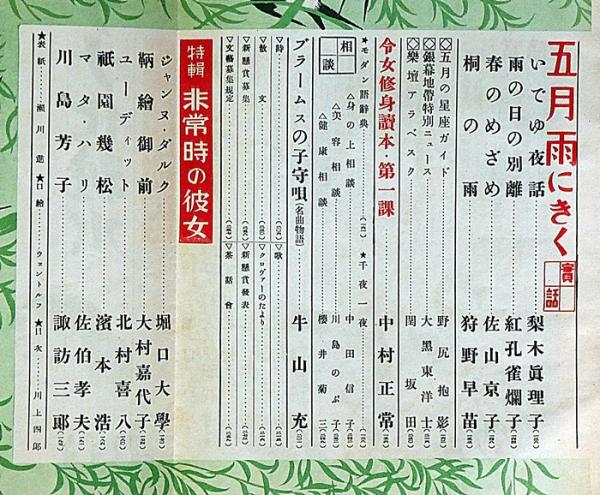 五月雨にきく 實話
いでゆ夜話 梨木眞理子
雨の日の別離 紅孔雀爛子
春のめざめ 佐山京子
桐の雨 狩野早苗
◇五月の星座ガイド 野尻抱影
◇銀幕地帶特別ニュース 大黑東洋士
◇樂壇アラベスク 関坂田
令女修身讀本 第一課 中村正常
★モダン語辭典 ★千夜一夜
相談
△身の上相談 中田信子
△美容相談 川島のぶ子
△健康相談 櫻井菊三
ブラームスの子守唄(名曲物語) 牛山充
▽詩 ▽歌
▽散文 ▽クロヴァーのたより
▽新懸賞募集 ▽新懸賞發表
▽文藝募集規定 ▽茶話會
特輯 非常時の彼女
ジャンヌ・ダルク 堀口大學
鞆繪御前 大村嘉代子
ユーディット 北村喜八
祇園幾松 濱本浩
マタハリ 佐伯孝夫
川島芳子 諏訪三郎
★表紙 瀨川 ★口繪 ウェントルフ ★目次 川上四郎